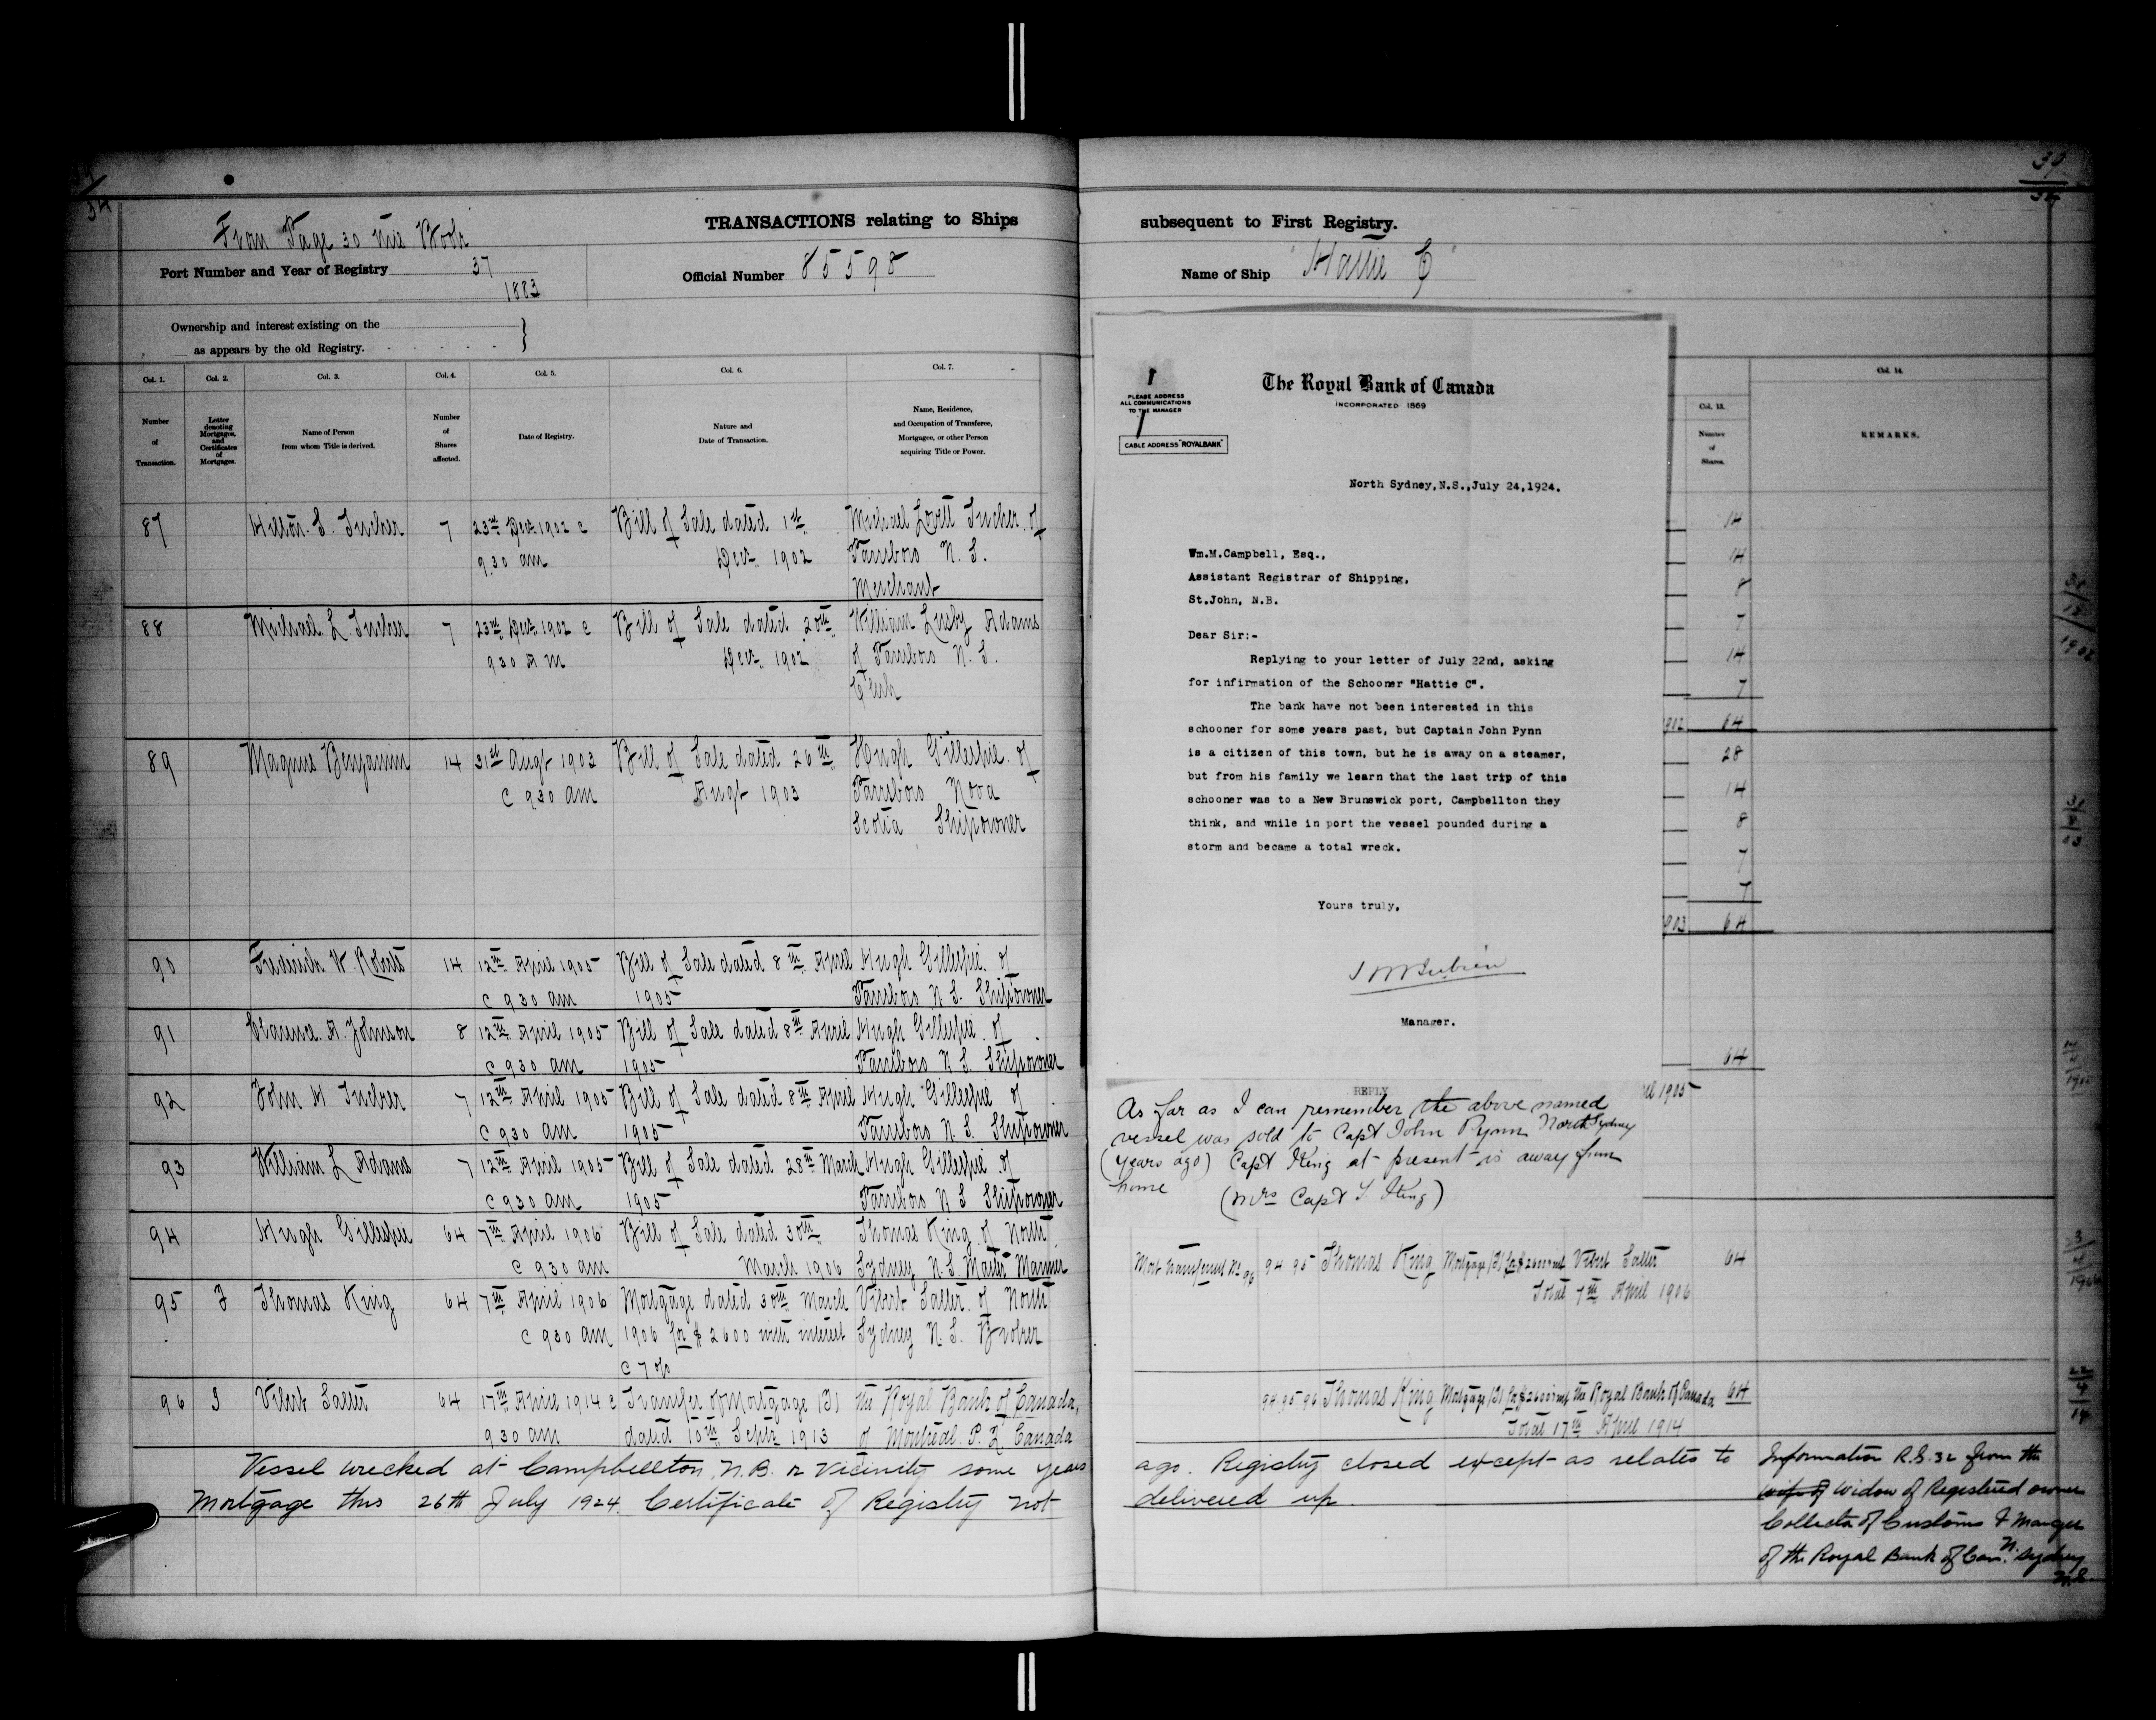 39
34
From Page 30 this Book
TRANSACTIONS relating to Ships
Port Number and Year of Registry 37
1883
Official Number 85598
Ownership and interest existing on the
as appears by the old Registry.
Col. 1.
Number
of
Transaction.
Col. 2.
Letter
denoting
Mortgages,
and
Certificates
of
Mortgages.
Col. 3.
Name of Person
from whom Title is derived.
Col. 4.
Number
of
Shares
affected.
Col. 5.
Date of Registry.
Col. 6.
Nature and
Date of Transaction.
Col. 7.
Name, Residence,
and Occupation of Transferee,
Mortgagee, or other Person
acquiring Title or Power.
87 Hilton S. Tucker 7 23rd Decr 1902 @ Bill of Sale dated 1st Michael Lovitt Tucker of
9.30 am Decr 1902 Parrsboro N. S.
Merchant
88 Michael L Tucker 7 23rd Decr 1902 @ Bill of Sale dated 20th William Lusby Adams
930 A M Decr 1902 of Parrsboro N. S.
Clerk
89 Magnus Benjamin 14 31st Augt 1903 Bill of Sale dated 26th Hugh Gillespie of
@ 930 am Augt 1903 Parrsboro Nova
Scotia Shipowner
90 Frederick W. Roberts 14 12th April 1905 Bill of Sale dated 8th April Hugh Gillespie of
@ 930 am 1905 Parrsboro N. S. Shipowner
91 Clarence A. Johnson 8 12th April 1905 Bill of Sale dated 8th April Hugh Gillespie of
@ 930 am 1905 Parrsboro N. S. Shipowner
92 John H Tucker 7 12th April 1905 Bill of Sale dated 8th April Hugh Gillespie of
@ 930 am 1905 Parrsboro N. S. Shipowner
93 William L Adams 7 12th April 1905 Bill of Sale dated 28th March Hugh Gillespie of
@ 930 am 1905 Parrsboro N S Shipowner
94 Hugh Gillespie 64 7th April 1906 Bill of Sale dated 30th Thomas King of North
@ 930 am March 1906 Sydney N. S. Master Mariner
95 Thomas King 64 7th April 1906 Mortgage dated 30th March Vibert Salter of North
@ 930 am 1906 for $2600 with interest Sydney N. S. Broker
@ 7 %
96 Vibert Salter 64 17th April 1914 @ Transfer of Mortgage the Royal Bank of Canada,
930 am dated 10th Septr 1913 of Montreal P. Q. Canada
Vessel wrecked at Campbellton, N.B. or Vicinity some years
Mortgage this 26th July 1924. Certificate of Registry not
39
34
subsequent to First Registry.
Name of Ship "Hattie C"
The Royal Bank of Canada
INCORPORATED 1869
PLEASE ADDRESS
ALL COMMUNICATIONS
TO THE MANAGER
CABLE ADDRESS "ROYALBANK"
North Sydney,N.S.,July 24,1924.
Wm.M.Campbell, Esq.,
Assistant Registrar of Shipping,
St.John, N.B.
Dear Sir:-
Replying to your letter of July 22nd, asking
for infirmation of the Schooner "Hattie C".
The bank have not been interested in this
schooner for some years past, but Captain John Pynn
is a citizen of this town, but he is away on a steamer,
but from his family we learn that the last trip of this
schooner was to a New Brunswick port, Campbellton they
think, and while in port the vessel pounded during a
storm and became a total wreck.
Yours truly,
Manager.
REPLY
As far as I can remember the above named
vessel was sold to Capt John Pynn North Sydney
(years ago) Capt King at present is away from
home (Mrs Capt T. King)
Col. 13.
Number
of
Shares.
Col. 14.
REMARKS.
14
14
8
7
14
7
902 64
28
14
8
7
7
903 64
64
1905
Mort Transferred No 96 94 95 Thomas King Mortgage Vibert Salter 64
Total 7th April 1906
94 95 96 Thomas King Mortgage the Royal Bank of Canada 64
Total 17th April 1914
ago. Registry closed except as relates to
delivered up.
Information R.S. 32 from the
wife of Widow of Registered owner
Collector of Customs & Manager
of the Royal Bank of Can. N. Sydney
N.S.